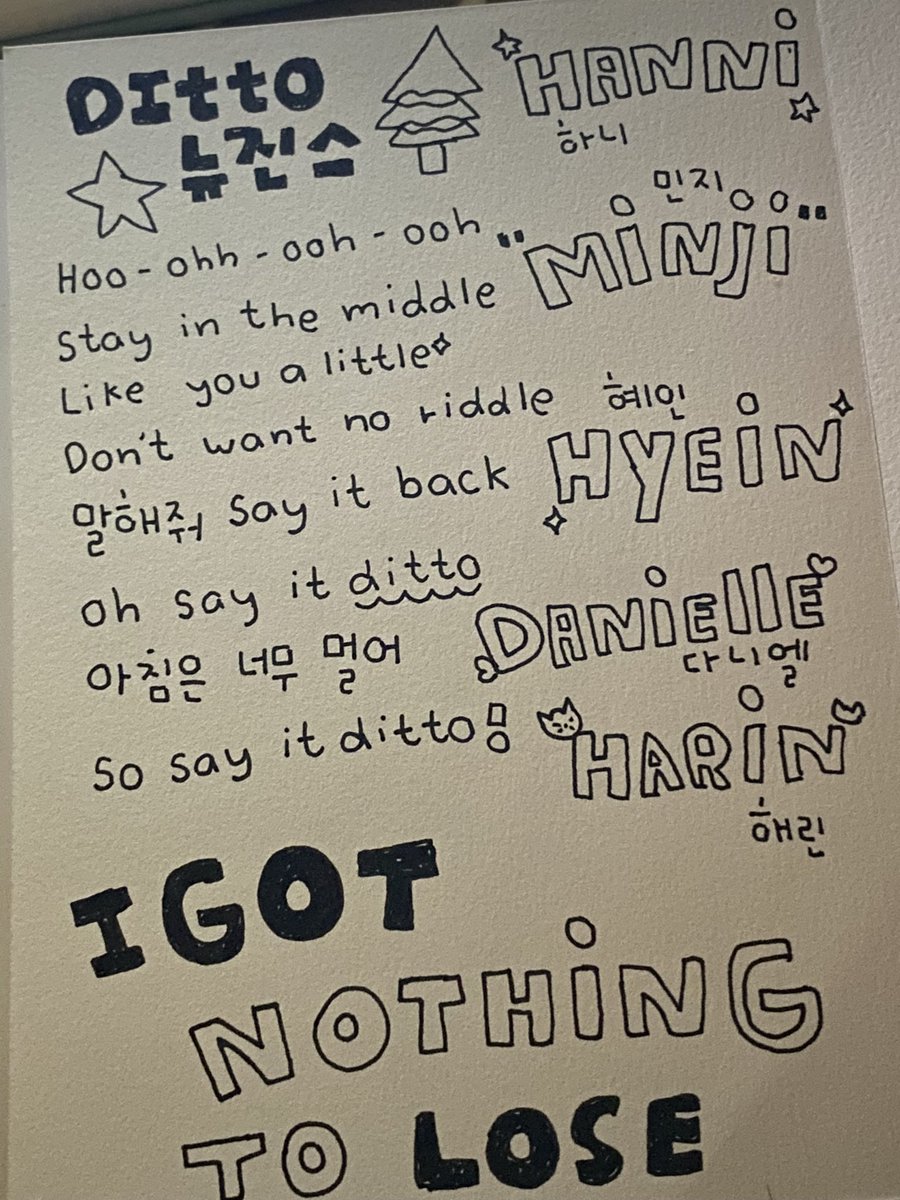 DIttO
뉴진스
HANNi
하니
Hoo - ohh - ooh - ooh
민지
"MiNji"
Stay in the middle
Like you a little
Don't want no riddle
혜인
HYEiN
말해줘 Say it back
oh say it ditto
DANiEllE
다니엘
아침은 너무 멀어
So say it ditto!
HARiN
해린
I GOT
NOTHiNG
TO LOSE